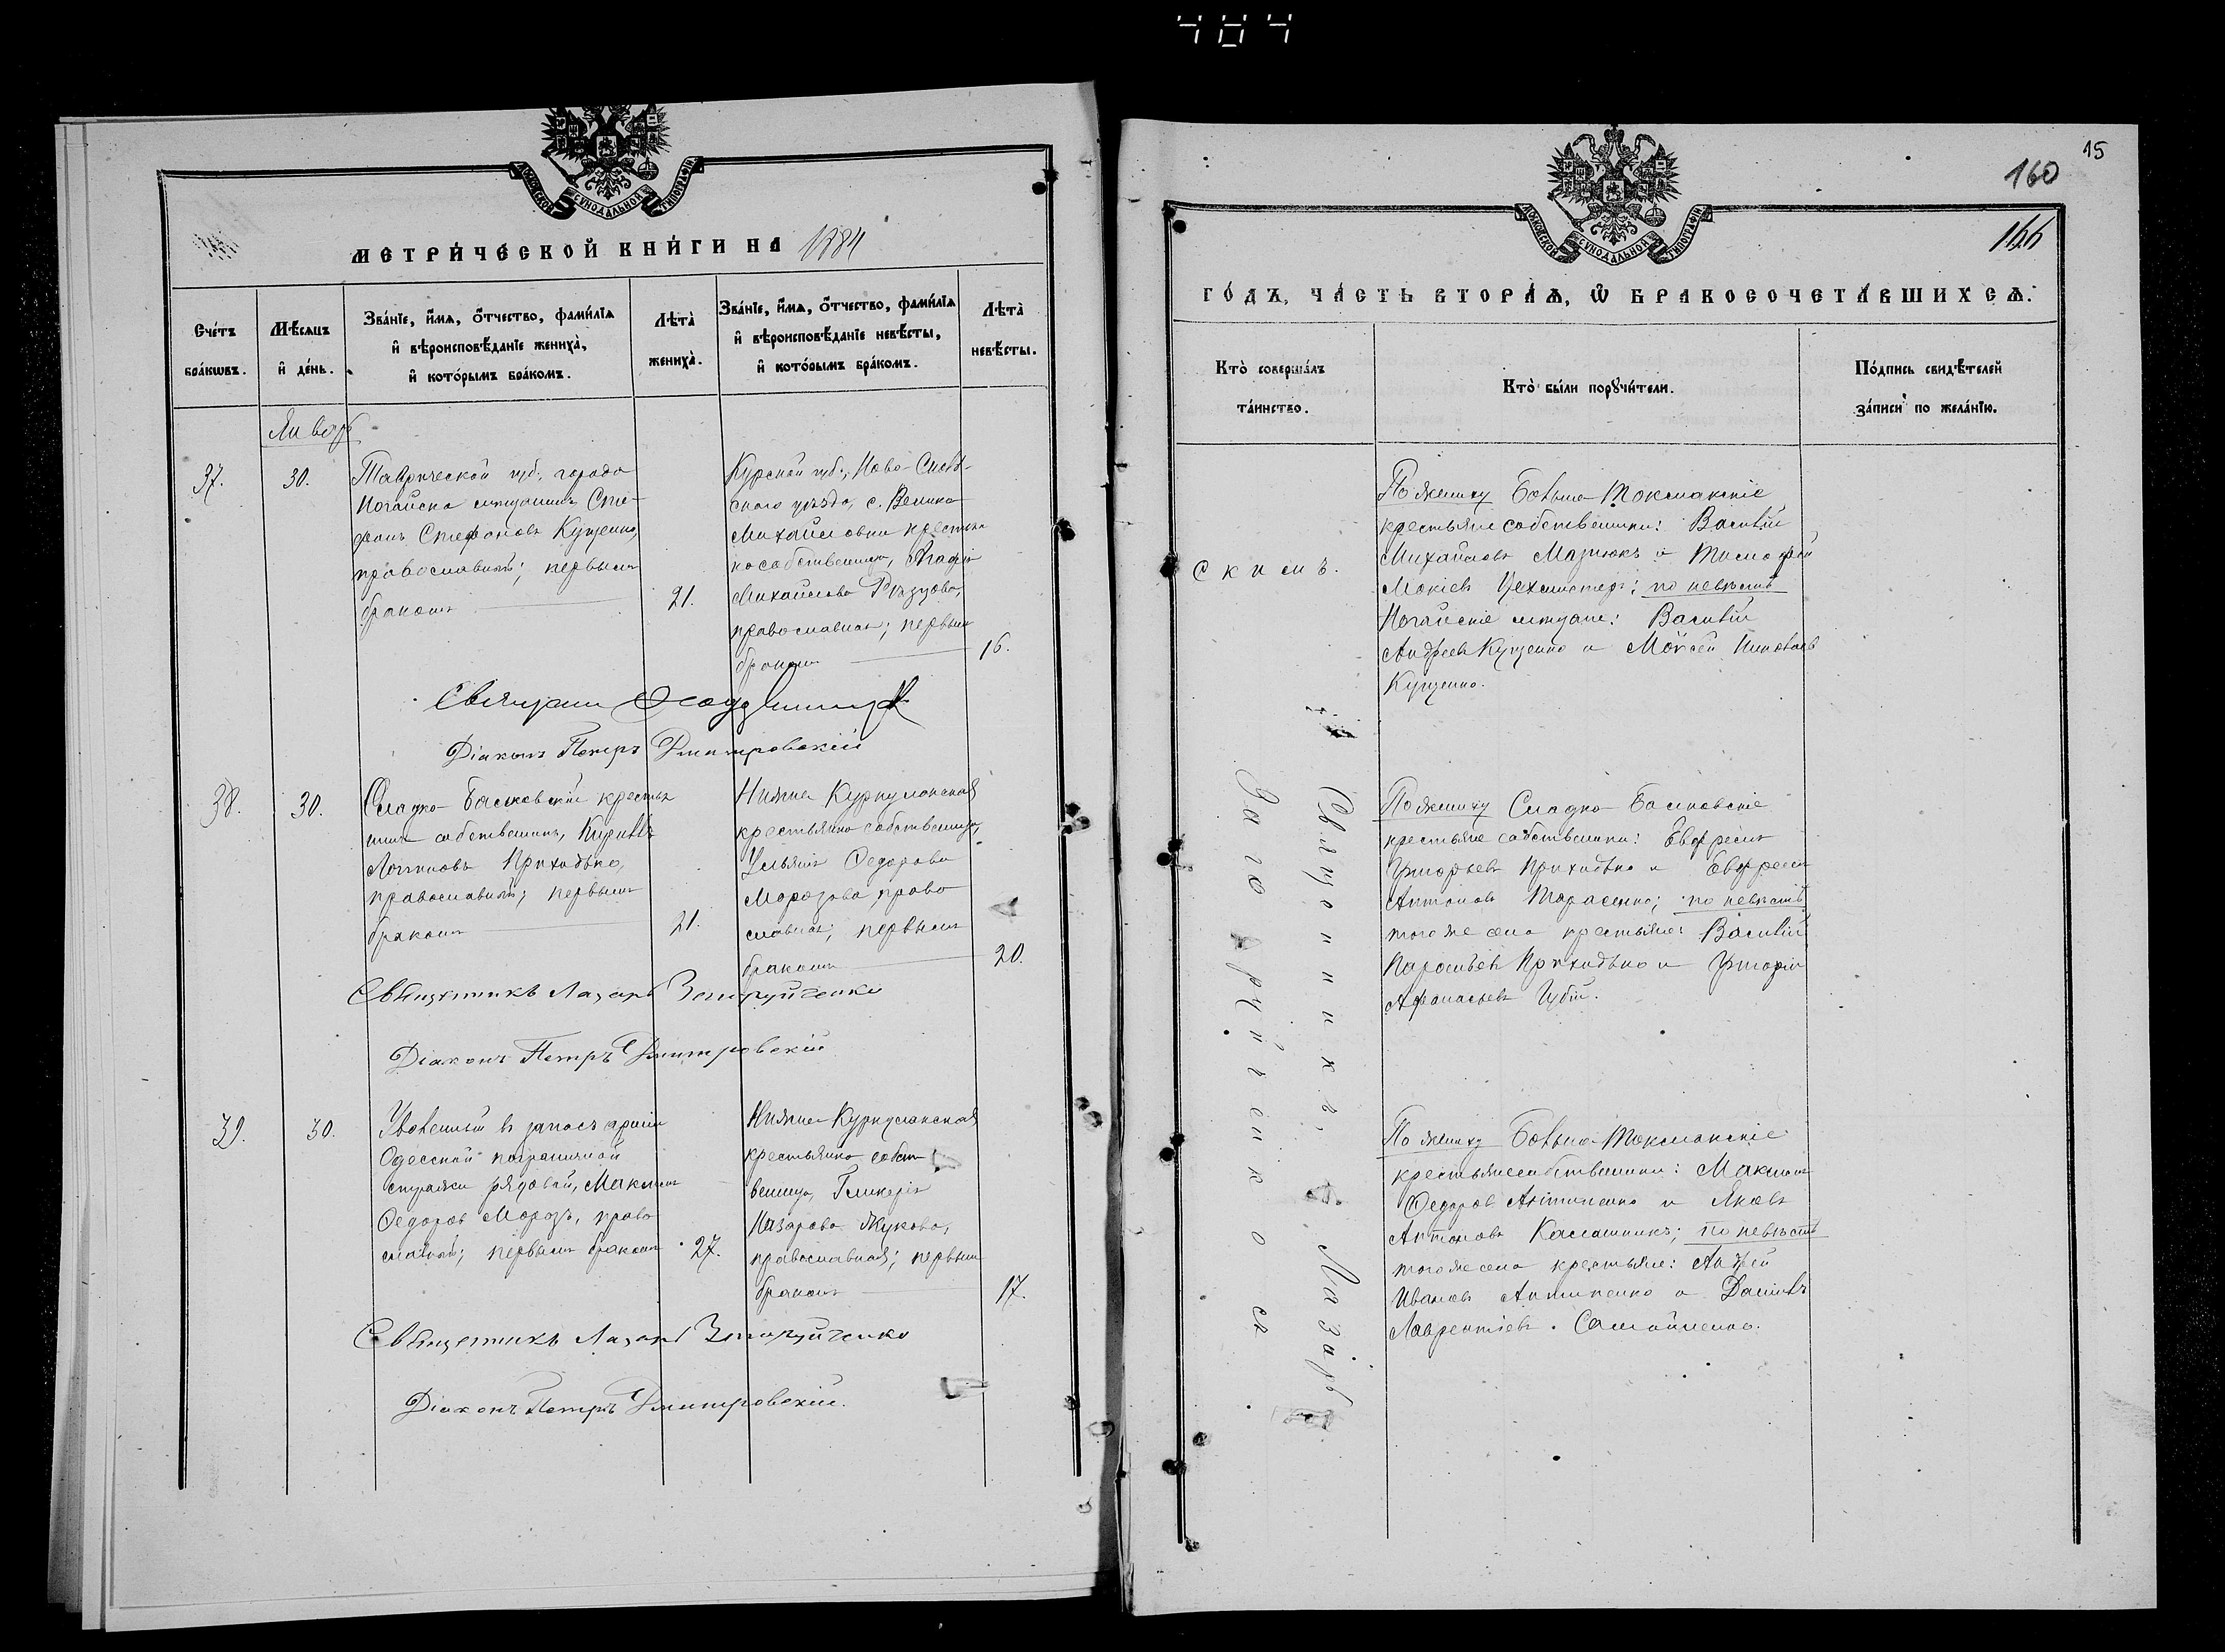 484
МЕТРИЧЕСКОЙ КНИГИ НА 1884
МОСКОВСКОЙ СУНОДАЛЬНОЙ ТИПОГРАФІИ
Счетъ браковъ.
Мѣсяцъ и день.
Званіе, имя, отчество, фамилія
и вѣроисповѣданіе жениха,
и которымъ бракомъ.
Лѣта
жениха.
Званіе, имя, отчество, фамилія
и вѣроисповѣданіе невѣсты,
и которымъ бракомъ.
Лѣта
невѣсты.
Январь
37.
30.
Таврической губ. города
Ногайска мѣщанинъ Сте-
фанъ Стефановъ Куценко,
православный; первымъ
бракомъ
21.
Курской губ., Ново-
скаго уѣзда, с. Велико
Михайловки крестьян
ка собственница, Агафія
Михайлова
православная; первымъ
бракомъ
16.
Священникъ
Діаконъ Петръ Дмитровскій
38.
30.
Сладко-Балковскій крестья
нинъ собственникъ, Кириллъ
Логиновъ Приходько,
православный; первымъ
бракомъ
21.
Нижне Куркулакская
крестьянка собственница,
Ульянія Ѳедорова
Морозова право
славная; первымъ
бракомъ
20.
Священникъ Лазарь
Діаконъ Петръ Дмитровскій
39.
30.
Уволенный въ запасъ арміи
Одесской пограничной
стражи рядовой, Максимъ
Ѳедоровъ Морозъ, право
славный; первымъ бракомъ
27.
Нижне Куркулакская
крестьянка собст
венница, Гликерія
Назарова Жукова,
православная; первымъ
бракомъ
17.
Священникъ Лазарь
Діаконъ Петръ Дмитровскій.
15
160
166
МОСКОВСКОЙ СУНОДАЛЬНОЙ ТИПОГРАФІИ
ГОДЪ, ЧАСТЬ ВТОРАЯ, Ѡ БРАКОСОЧЕТАВШИХСЯ.
Кто совершалъ
таинство.
Кто были поручители.
Подпись свидѣтелей
записи по желанію.
скимъ.
Священникъ Лазарь
По жениху Больше-Токмакскіе
крестьяне собственники: Василій
Михайловъ Мазнюкъ и Тимофей
Мокіевъ Цехмистеръ; по невѣстѣ
Ногайскіе мѣщане: Василій
Андреевъ Куценко и Мойсей
Куценко.
По жениху Сладко-Балковскіе
крестьяне собственники: Евфремъ
Григорьевъ Приходько и Евфремъ
Антоновъ Тарасенко; по невѣстѣ
того же села крестьяне: Василій
Приходько и Григорій
Афанасьевъ
По жениху Больше-Токмакскіе
крестьяне собственники: Максимъ
Ѳедоровъ Антипенко и Яковъ
Антоновъ Калашникъ; по невѣстѣ
того же села крестьяне:
Ивановъ Антипенко и Даніилъ
Лаврентіевъ Самойленко.